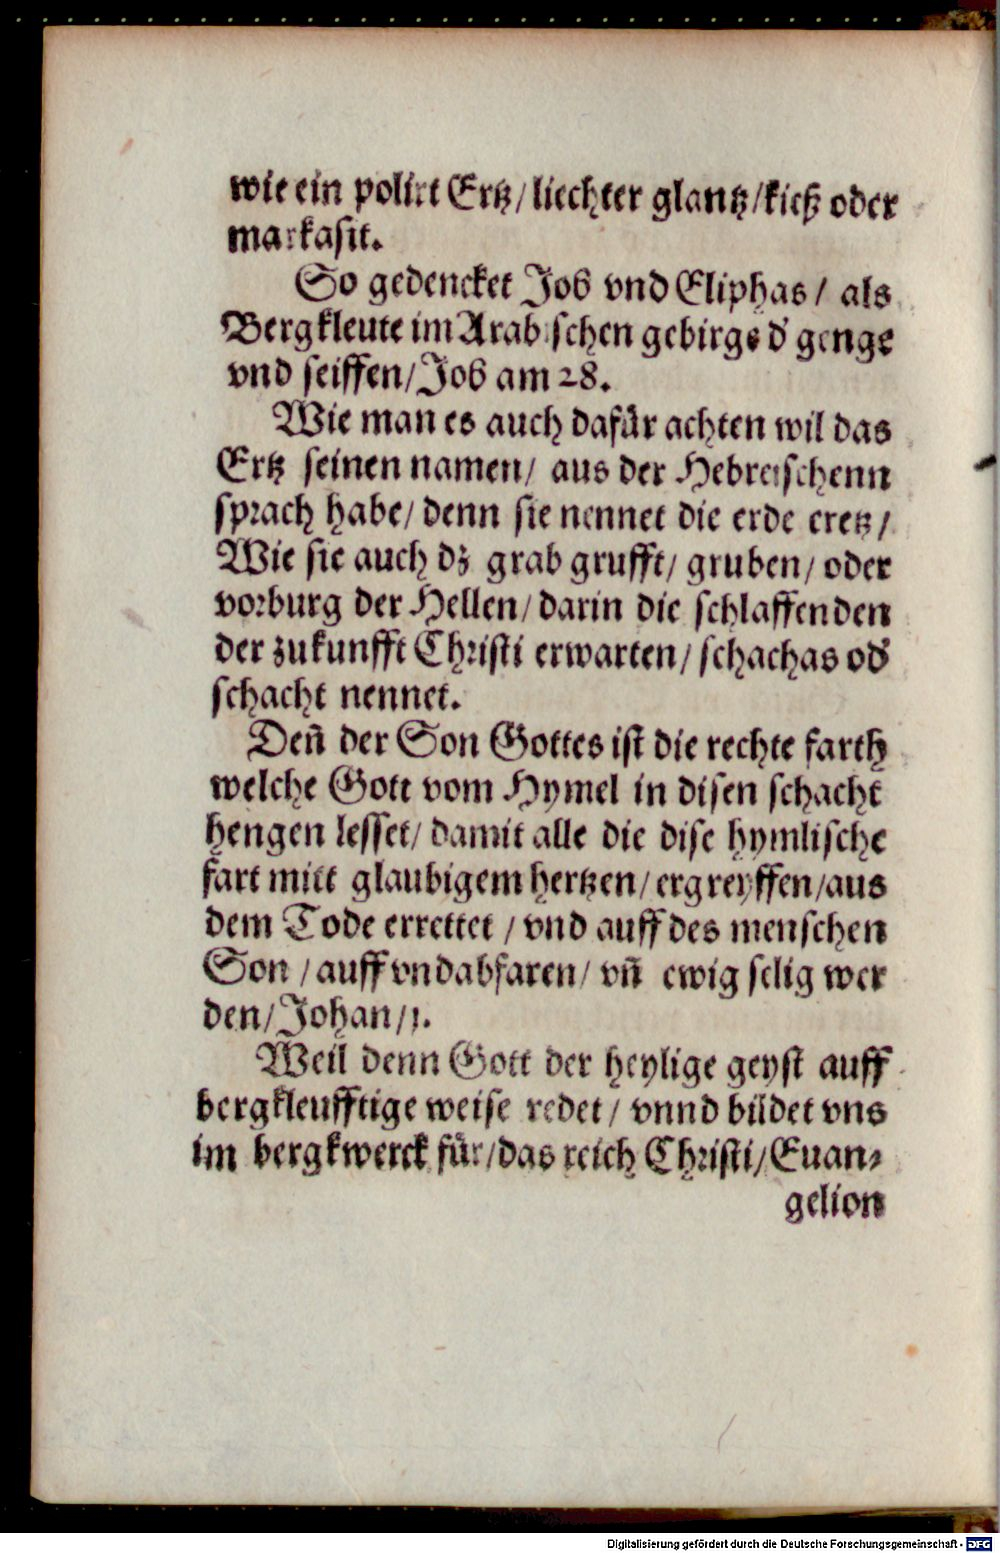 wie ein polirt Ertz/ liechter glantz/kieß oder
markasit.
So gedencket Job vnd Eliphas/ als
Bergkleute im Arabischen gebirgs d' genge
vnd seiffen/ Job am 28.
Wie man es auch dafür achten wil das
Ertz seinen namen/ aus der Hebreischenn
sprach habe/ denn sie nennet die erde eretz/
Wie sie auch dz grab grufft/ gruben/ oder
vorburg der Hellen/ darin die schlaffenden
der zukunfft Christi erwarten/ schachas od'
schacht nennet.
Deñ der Son Gottes ist die rechte farth
welche Gott vom Hymel in disen schacht
hengen lesset/ damit alle die dise hymlische
fart mitt glaubigem hertzen/ ergreyffen/aus
dem Tode errettet / vnd auff des menschen
Son / auff vnd abfaren/ vñ ewig selig wer
den/ Johan/1.
Weil denn Gott der heylige geyst auff
bergkleufftige weise redet/ vnnd bildet vns
im bergkwerck für/das reich Christi/ Euan-
gelion
Digitalisierung gefördert durch die Deutsche Forschungsgemeinschaft - DFG